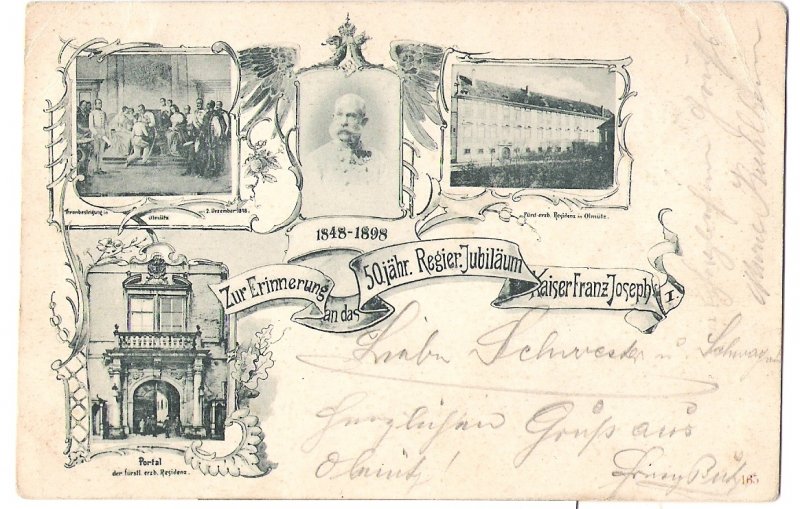 Thronbesteigung in Olmütz am 2. Dezember 1848.
1848-1898
Fürst-erzb. Residenz in Olmütz.
Zur Erinnerung
an das
50jähr. Regier. Jubiläum
Kaiser Franz Joseph's I.
Portal
der fürstl. erzb. Residenz.
Liebe Schwester u. Schwager
Herzlichen Gruß aus
Olmütz!
Gruß
165